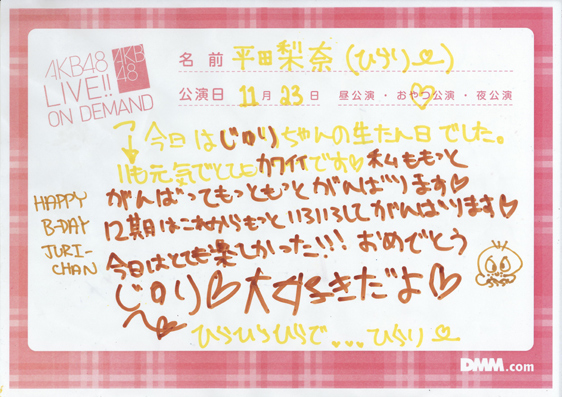 AKB48
LIVE!!
ON DEMAND
AKB
48
名前 平田梨奈(ひらりー♡)
公演日 11月23日 昼公演・おやつ公演・夜公演
今日はじゅりちゃんの生たん日でした。
いつも元気でとてもカワイイです♡私ももっと
がんばってもっともっとがんばります♡
12期はこれからもっといろいろしてがんばります♡
今日はとても楽しかった!!!おめでとう
じゅり♡大好きだよ♡
HAPPY
B-DAY
JURI-
CHAN
ひらひらひらで...ひらりー
DMM.com